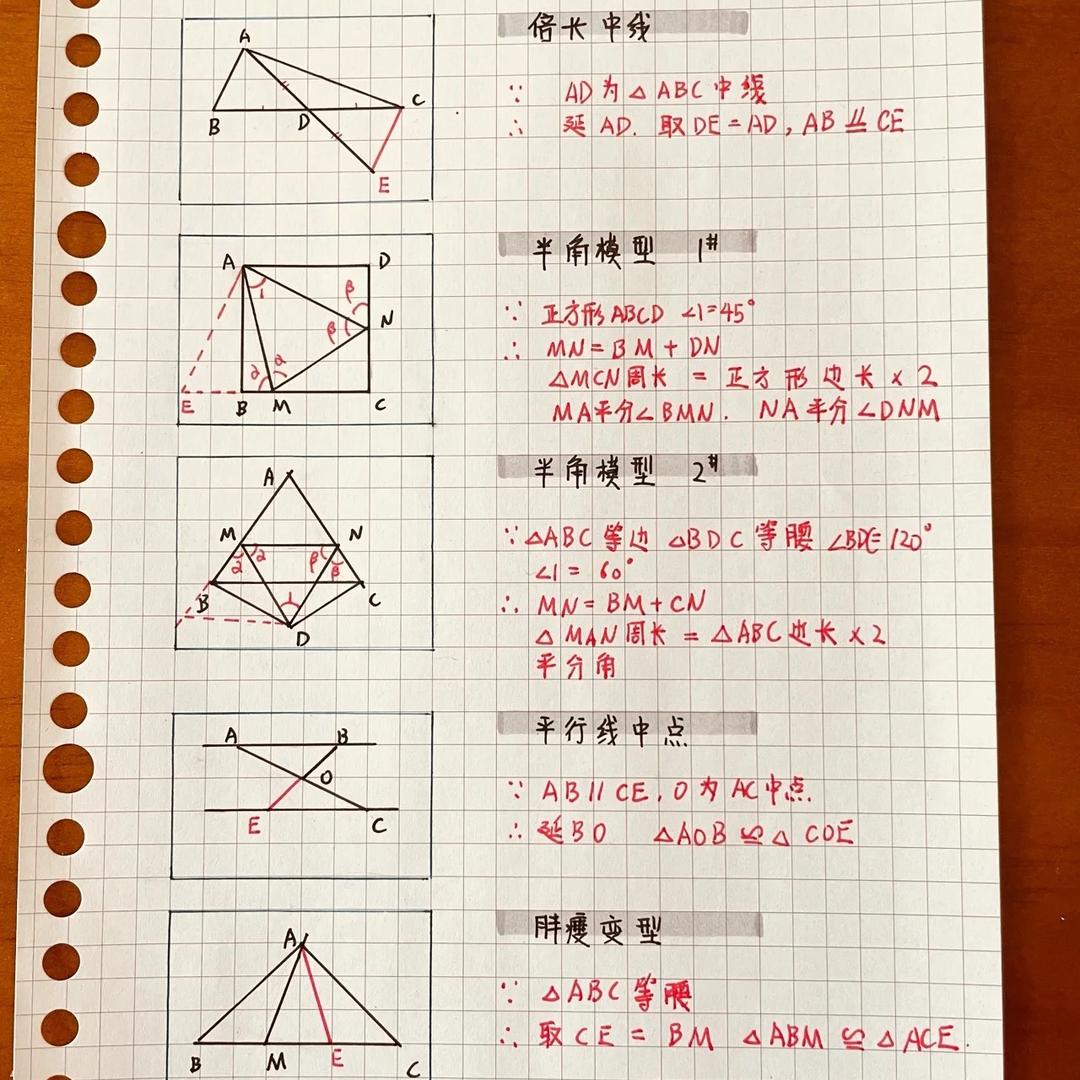 倍长中线
A
B
D
C
E
∵ AD为△ABC中线
∴ 延AD. 取DE=AD, AB⫫CE
半角模型 1#
A
D
1
β
N
β
α
2
E
B
M
C
∵ 正方形ABCD ∠1=45°
∴ MN=BM+DN
△MCN周长 = 正方形边长×2
MA平分∠BMN. NA平分∠DNM
半角模型 2#
A
M
N
2
2
β
β
B
1
C
D
∵△ABC等边 △BDC等腰 ∠BDC=120°
∠1=60°
∴ MN=BM+CN
△MAN周长=△ABC边长×2
平分角
平行线中点
A
B
O
E
C
∵ AB//CE, O为AC中点.
∴ 延BO △AOB≌△COE
胖瘦变型
A
B
M
E
C
∵ △ABC等腰
∴ 取CE=BM △ABM≌△ACE.